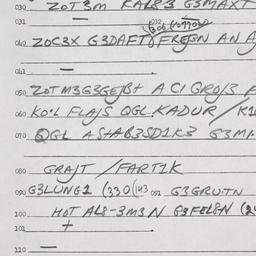 030 ZOT3M KALR3 G3MAXT
031 —
040 ZOC3X G3DAFT FREGN AN A
041 —
050 ZOTM3G3GEJBT A CI GROJ3 F
060 KO:L FLAJS QGL KADUR / K1
070 QGL ASTAB3SD1K3 G3MI
080 GRAJT / FART1K
090 G3LUNG1 (330(143 091 G3GRUTN
100 HOT AL8-3M3N G3FEL8N (2
101 +
110 —